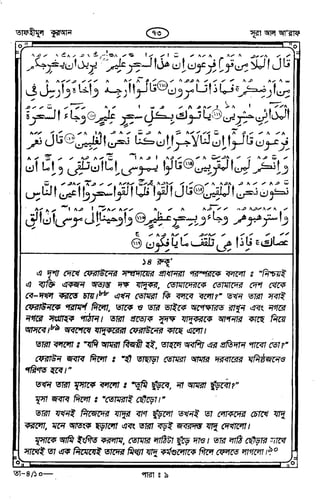 তাফহীমুল কুরআন
৭৩
সূরা আল আ'রাফ
قَالَ الْمَلَاُ مِنْ قَوْمِ فِرْعَوْنَ اِنَّ هٰذَا لَسٰحِرٌ عَلِيْمٌ يُّرِيْدُ اَنْ يُّخْرِجَكُمْ
مِّنْ اَرْضِكُمْ فَمَاذَا تَاْمُرُوْنَ قَالُوْٓا اَرْجِهْ وَاَخَاهُ وَاَرْسِلْ فِى
الْمَدَآئِنِ حٰشِرِيْنَ يَاْتُوْكَ بِكُلِّ سٰحِرٍ عَلِيْمٍ وَجَآءَ السَّحَرَةُ
فِرْعَوْنَ قَالُوْٓا اِنَّ لَنَا لَاَجْرًا اِنْ كُنَّا نَحْنُ الْغٰلِبِيْنَ قَالَ نَعَمْ
وَاِنَّكُمْ لَمِنَ الْمُقَرَّبِيْنَ قَالُوْا يٰمُوْسٰٓى اِمَّآ اَنْ تُلْقِىَ وَاِمَّآ اَنْ
نَّكُوْنَ نَحْنُ الْمُلْقِيْنَ قَالَ اَلْقُوْا فَلَمَّآ اَلْقَوْا سَحَرُوْٓا اَعْيُنَ النَّاسِ
وَاسْتَرْهَبُوْهُمْ وَجَآءُوْ بِسِحْرٍ عَظِيْمٍ وَاَوْحَيْنَآ اِلٰى مُوْسٰٓى اَنْ اَلْقِ
عَصَاكَ فَاِذَا هِىَ تَلْقَفُ مَا يَاْفِكُوْنَ
১৪ রুকূ'
এ দৃশ্য দেখে ফেরাউনের সম্প্রদায়ের প্রধানরা পরস্পরকে বললো : "নিশ্চয়ই
এ ব্যক্তি একজন অত্যন্ত দক্ষ যাদুকর, তোমাদেরকে তোমাদের দেশ থেকে
বে-দখল করতে চায়। এখন তোমরা কি বলবে বলো?" তখন তারা সবাই
ফেরাউনকে পরামর্শ দিলো, তাকে ও তার ভাইকে অপেক্ষারত রাখুন এবং নগরে
নগরে সংগ্রাহক পাঠান। তারা প্রত্যেক সুদক্ষ যাদুকরকে আপনার কাছে নিয়ে
আসবে। অবশেষে যাদুকরেরা ফেরাউনের কাছে এলো।
তারা বললো : "যদি আমরা বিজয়ী হই, তাহলে অবশ্যি এর প্রতিদান পাবো তো?"
ফেরাউন জবাব দিলো : "হাঁ তাছাড়া তোমরা আমার দরবারের ঘনিষ্ঠজনেও
পরিণত হবে।"
তখন তারা মূসাকে বললো : "তুমি ছুঁড়বে, না আমরা ছুঁড়বো?"
মূসা জবাব দিলো : "তোমরাই ছোঁড়ো।"
তারা যখনই নিজেদের যাদুর বাণ ছুঁড়লো তখনই তা লোকদের চোখে যাদু
করলো, মনে আতংক ছড়ালো এবং তারা বড়ই জবরদস্ত যাদু দেখালো।
মূসাকে আমি ইংগিত করলাম, তোমার লাঠিটা ছুঁড়ে দাও। তার লাঠি ছোঁড়ার সাথে
সাথেই তা এক নিমেষেই তাদের মিথ্যা যাদু কর্মগুলোকে গিলে ফেলতে লাগলো।
তা-৪/১০—
পারা : ৯